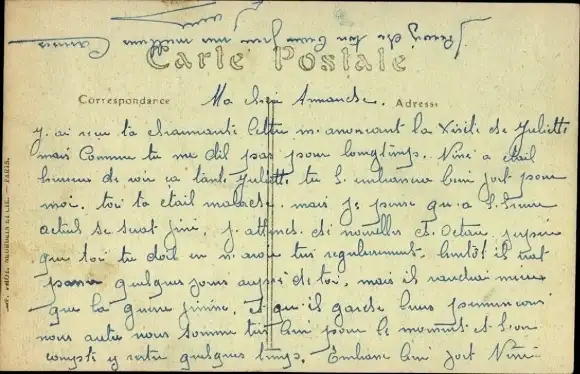 Carte Postale
Correspondance
Adresse
Ma cher Amanda.
j. ai recu ta charmante lettre m. anoncant la Visite de Juliette
mais Comme tu me dit pas pour longtemps. Nini a était
hureuse de voir sa tante Juliette tu l. embrasera bien fort pour
moi. toi ta était malade. mais je pense qu. a l. heure
actuel se serat fini, j. attends de nouvelles d. Octave, j espère
que toi tu doit en n. avoir tres regulierement. bientôt il vat
passer quelques jours auprès de toi, mais il vaudrai mieux
que la guerre finine, et qu. il garde leurs permission
nous autre nous somme tres bien pour le moment et l. on
compte y rester quelques temps. Embrase bien fort Nini
Reçoit de ton Cœur pour une meilleur Caresse